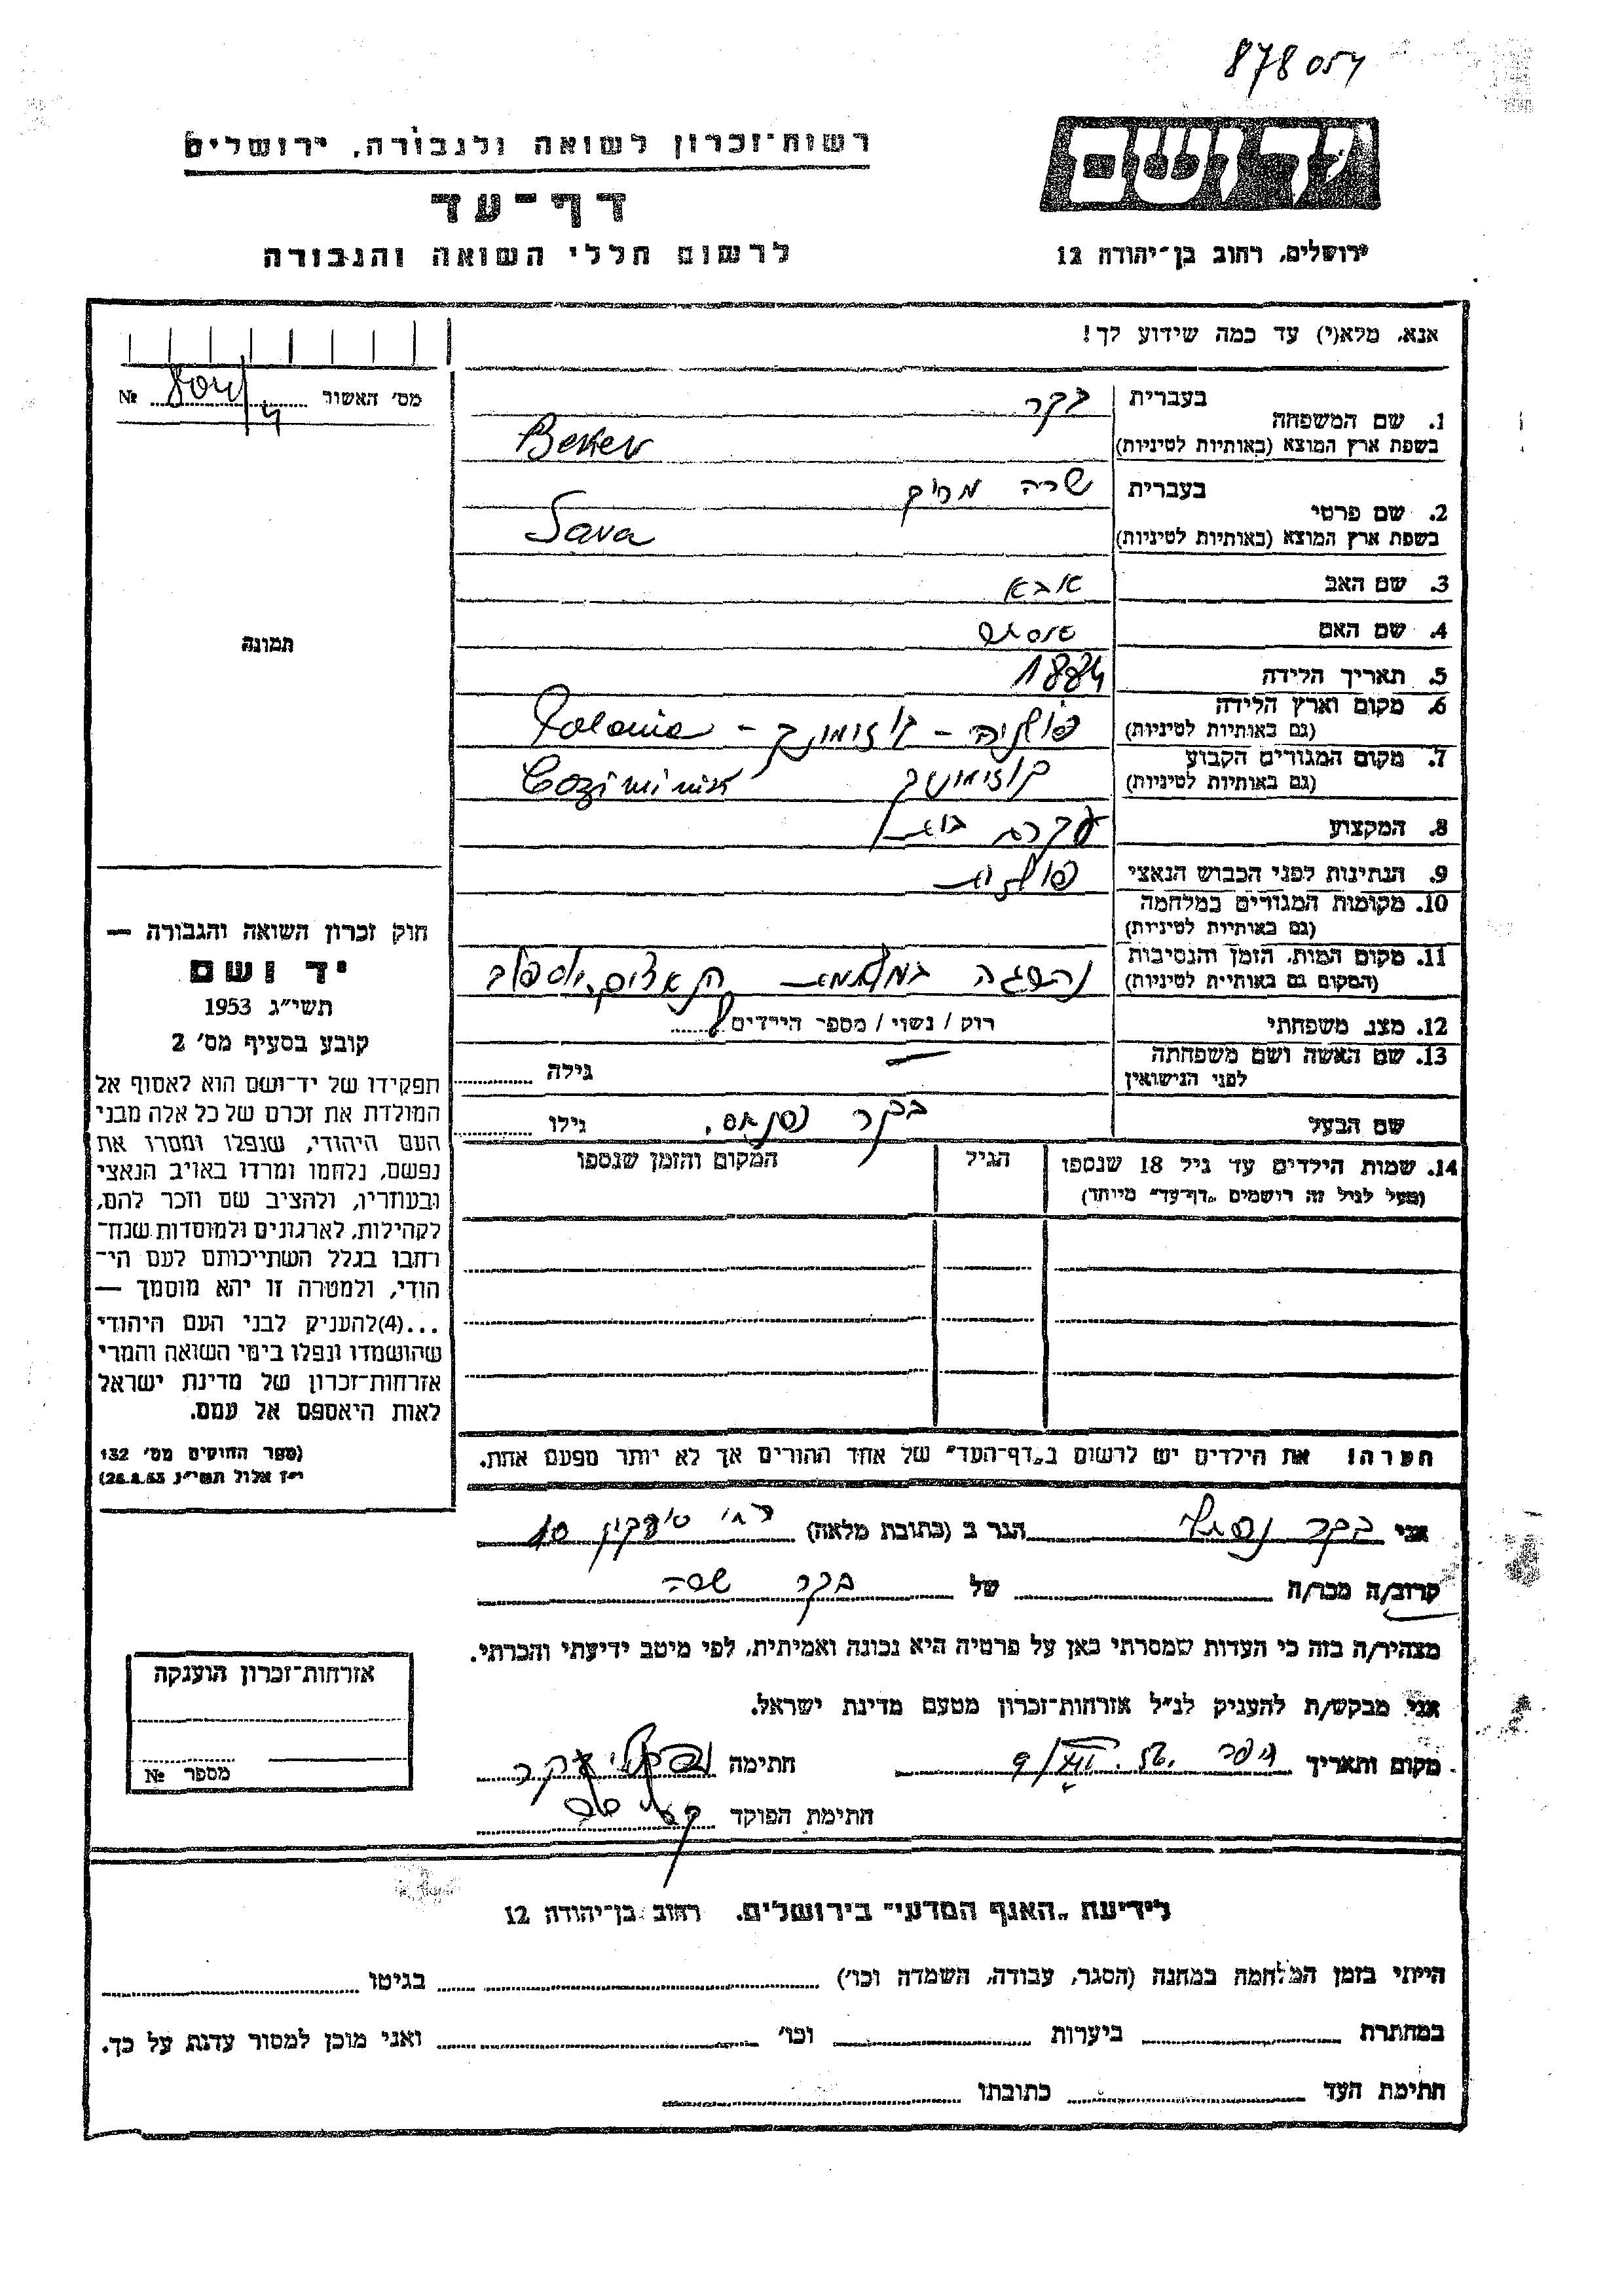 878054
רשות־זכרון לשואה ולגבורה, ירושלים
דף־עד
לרשום חללי השואה והגבורה
ידושם
ירושלים, רחוב בן־יהודה 12
אנא, מלא(י) עד כמה שידוע לך!
מס׳ האשור №
1. שם המשפחה
בעברית בקר
בשפת ארץ המוצא (באותיות לטיניות) Beker
2. שם פרטי
בעברית שרה מרים
בשפת ארץ המוצא (באותיות לטיניות) Sara
3. שם האב אבא
4. שם האם
5. תאריך הלידה 1884
6. מקום וארץ הלידה
(גם באותיות לטיניות) פולניה - Polonia
7. מקום המגורים הקבוע
(גם באותיות לטיניות) Coziminik
8. המקצוע עקרת בית
9. הנתינות לפני הכבוש הנאצי פולנית
10. מקומות המגורים במלחמה
(גם באותיות לטיניות)
11. מקום המות, הזמן והנסיבות
(המקום גם באותיות לטיניות) נהסגה
12. מצב משפחתי רוק / נשוי / מספר הירדים
13. שם האשה ושם משפחתה
לפני הנישואין גילה
שם הבעל בקר גילו
14. שמות הילדים עד גיל 18 שנספו
(מעל לגיל זה רושמים „דף־עד" מיוחד)
הגיל
המקום והזמן שנספו
הערה! את הילדים יש לרשום ב„דף־העד" של אחד ההורים אך לא יותר מפעם אחת.
תמונה
חוק זכרון השואה והגבורה —
יד ושם
תשי״ג 1953
קובע בסעיף מס׳ 2
תפקידו של יד־ושם הוא לאסוף אל
המולדת את זכרם של כל אלה מבני
העם היהודי, שנפלו ומסרו את
נפשם, נלחמו ומרדו באויב הנאצי
ובעוזריו, ולהציב שם וזכר להם,
לקהילות, לארגונים ולמוסדות שנח־
רחבו בגלל השתייכותם לעם הי־
הודי, ולמטרה זו יהא מוסמך —
...(4)להעניק לבני העם היהודי
שהושמדו ונפלו בימי השואה והמרי
אזרחות־זכרון של מדינת ישראל
לאות היאספם אל עמם.
(ספר החוקים מס׳ 132
י״ז אלול תשי״ג 28.8.53)
אני בקר הגר ב (כתובת מלאה) 10
קרוב/ה מכר/ה של בקר שרה
מצהיר/ה בזה כי העדות שמסרתי כאן על פרטיה היא נכונה ואמיתית, לפי מיטב ידיעתי והכרתי.
אני מבקש/ת להעניק לנ״ל אזרחות־זכרון מטעם מדינת ישראל.
מקום ותאריך חיפה חתימה
חתימת הפוקד
אזרחות־זכרון הוענקה
מספר №
לידיעת „האגף המדעי" בירושלים, רחוב בן־יהודה 12
הייתי בזמן המלחמה במחנה (הסגר, עבודה, השמדה וכו׳) בגיטו
במחתרת ביערות וכו׳ ואני מוכן למסור עדות על כך.
חתימת העד כתובתו